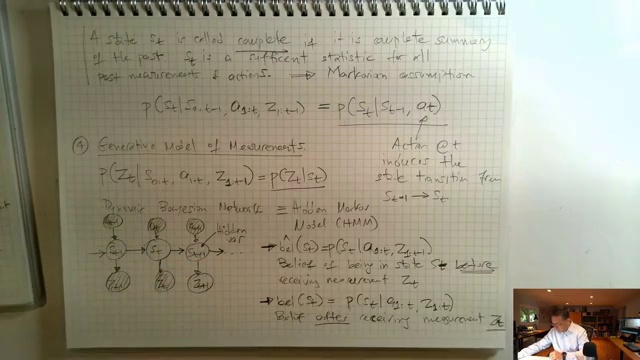 A state St is called complete if it is complete summary
of the past St is a sufficient statistic for all
past measurements & actions. ⟹ Markovian assumption
p(St|S0:t-1, a1:t, Z1:t-1) = p(St|St-1, at)
④ Generative Model of Measurements
p(Zt|S0:t, a1:t, Z1:t-1) = p(Zt|St)
Action @ t
induces the
state transition from
St-1 → St
Dynamic Bayesian Networks ≡ Hidden Markov
Model (HMM)
Hidden
var
St-1 St St+1 ...
Zt-1 Zt Zt+1
→ bel^(St) = p(St|a1:t, Z1:t-1)
Belief of being in state St before
receiving measurement Zt
→ bel(St) = p(St|a1:t, Z1:t)
Belief after receiving measurement Zt